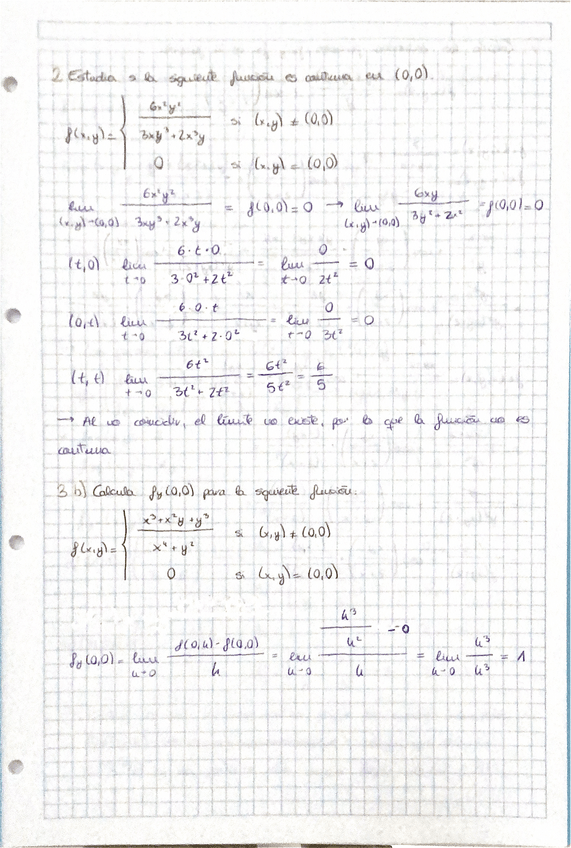 2 Estudia si la siguiente función es continua en (0,0).
f(x,y) = { 6x²y² / (3xy³ + 2x³y) si (x,y) ≠ (0,0)
0 si (x,y) = (0,0)
lim (x,y)→(0,0) 6x²y² / (3xy³ + 2x³y) = f(0,0) = 0 → lim (x,y)→(0,0) 6xy / (3y² + 2x²) = f(0,0) = 0
(t,0) lim t→0 6·t·0 / (3·0² + 2t²) = lim t→0 0 / 2t² = 0
(0,t) lim t→0 6·0·t / (3t² + 2·0²) = lim t→0 0 / 3t² = 0
(t,t) lim t→0 6t² / (3t² + 2t²) = 6t² / 5t² = 6/5
→ Al no coincidir, el límite no existe, por lo que la función no es
continua
3. b) Calcula fy(0,0) para la siguiente función.
f(x,y) = { (x³ + x²y + y³) / (x⁴ + y²) si (x,y) ≠ (0,0)
0 si (x,y) = (0,0)
fy(0,0) = lim h→0 (f(0,h) - f(0,0)) / h = lim h→0 (h³/h² - 0) / h = lim h→0 h³/h³ = 1